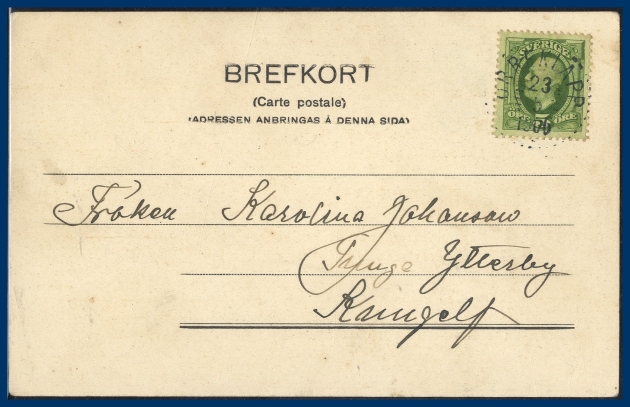 BREFKORT
(Carte postale)
(ADRESSEN ANBRINGAS Å DENNA SIDA)
SVERIGE
23
1900
ÖRE
Fröken Karolina Johanson
Ytterby
Kungelf